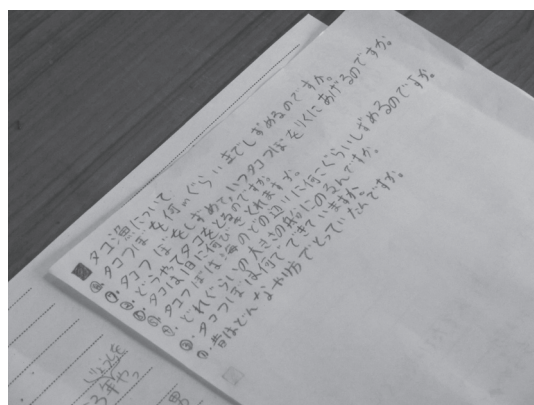 ■ タコ漁について
タコつぼを何mぐらいまでしずめるのですか。
タコつぼをしずめて、いつタコつぼをりくにあげるのですか。
どうやってタコをとるのですか。
タコは1日に何びきとれますか。
タコつぼは海のどの辺りに何こぐらいしずめるのですか。
どれぐらいの大きさの船にのるんですか。
タコつぼは何でできていますか。
昔はどんなやり方でとっていたんですか。